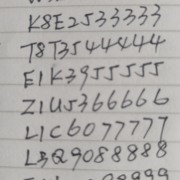 K8E2533333
T8T3544444
E1K3955555
Z1U5366666
L1C6077777
L3Q9088888